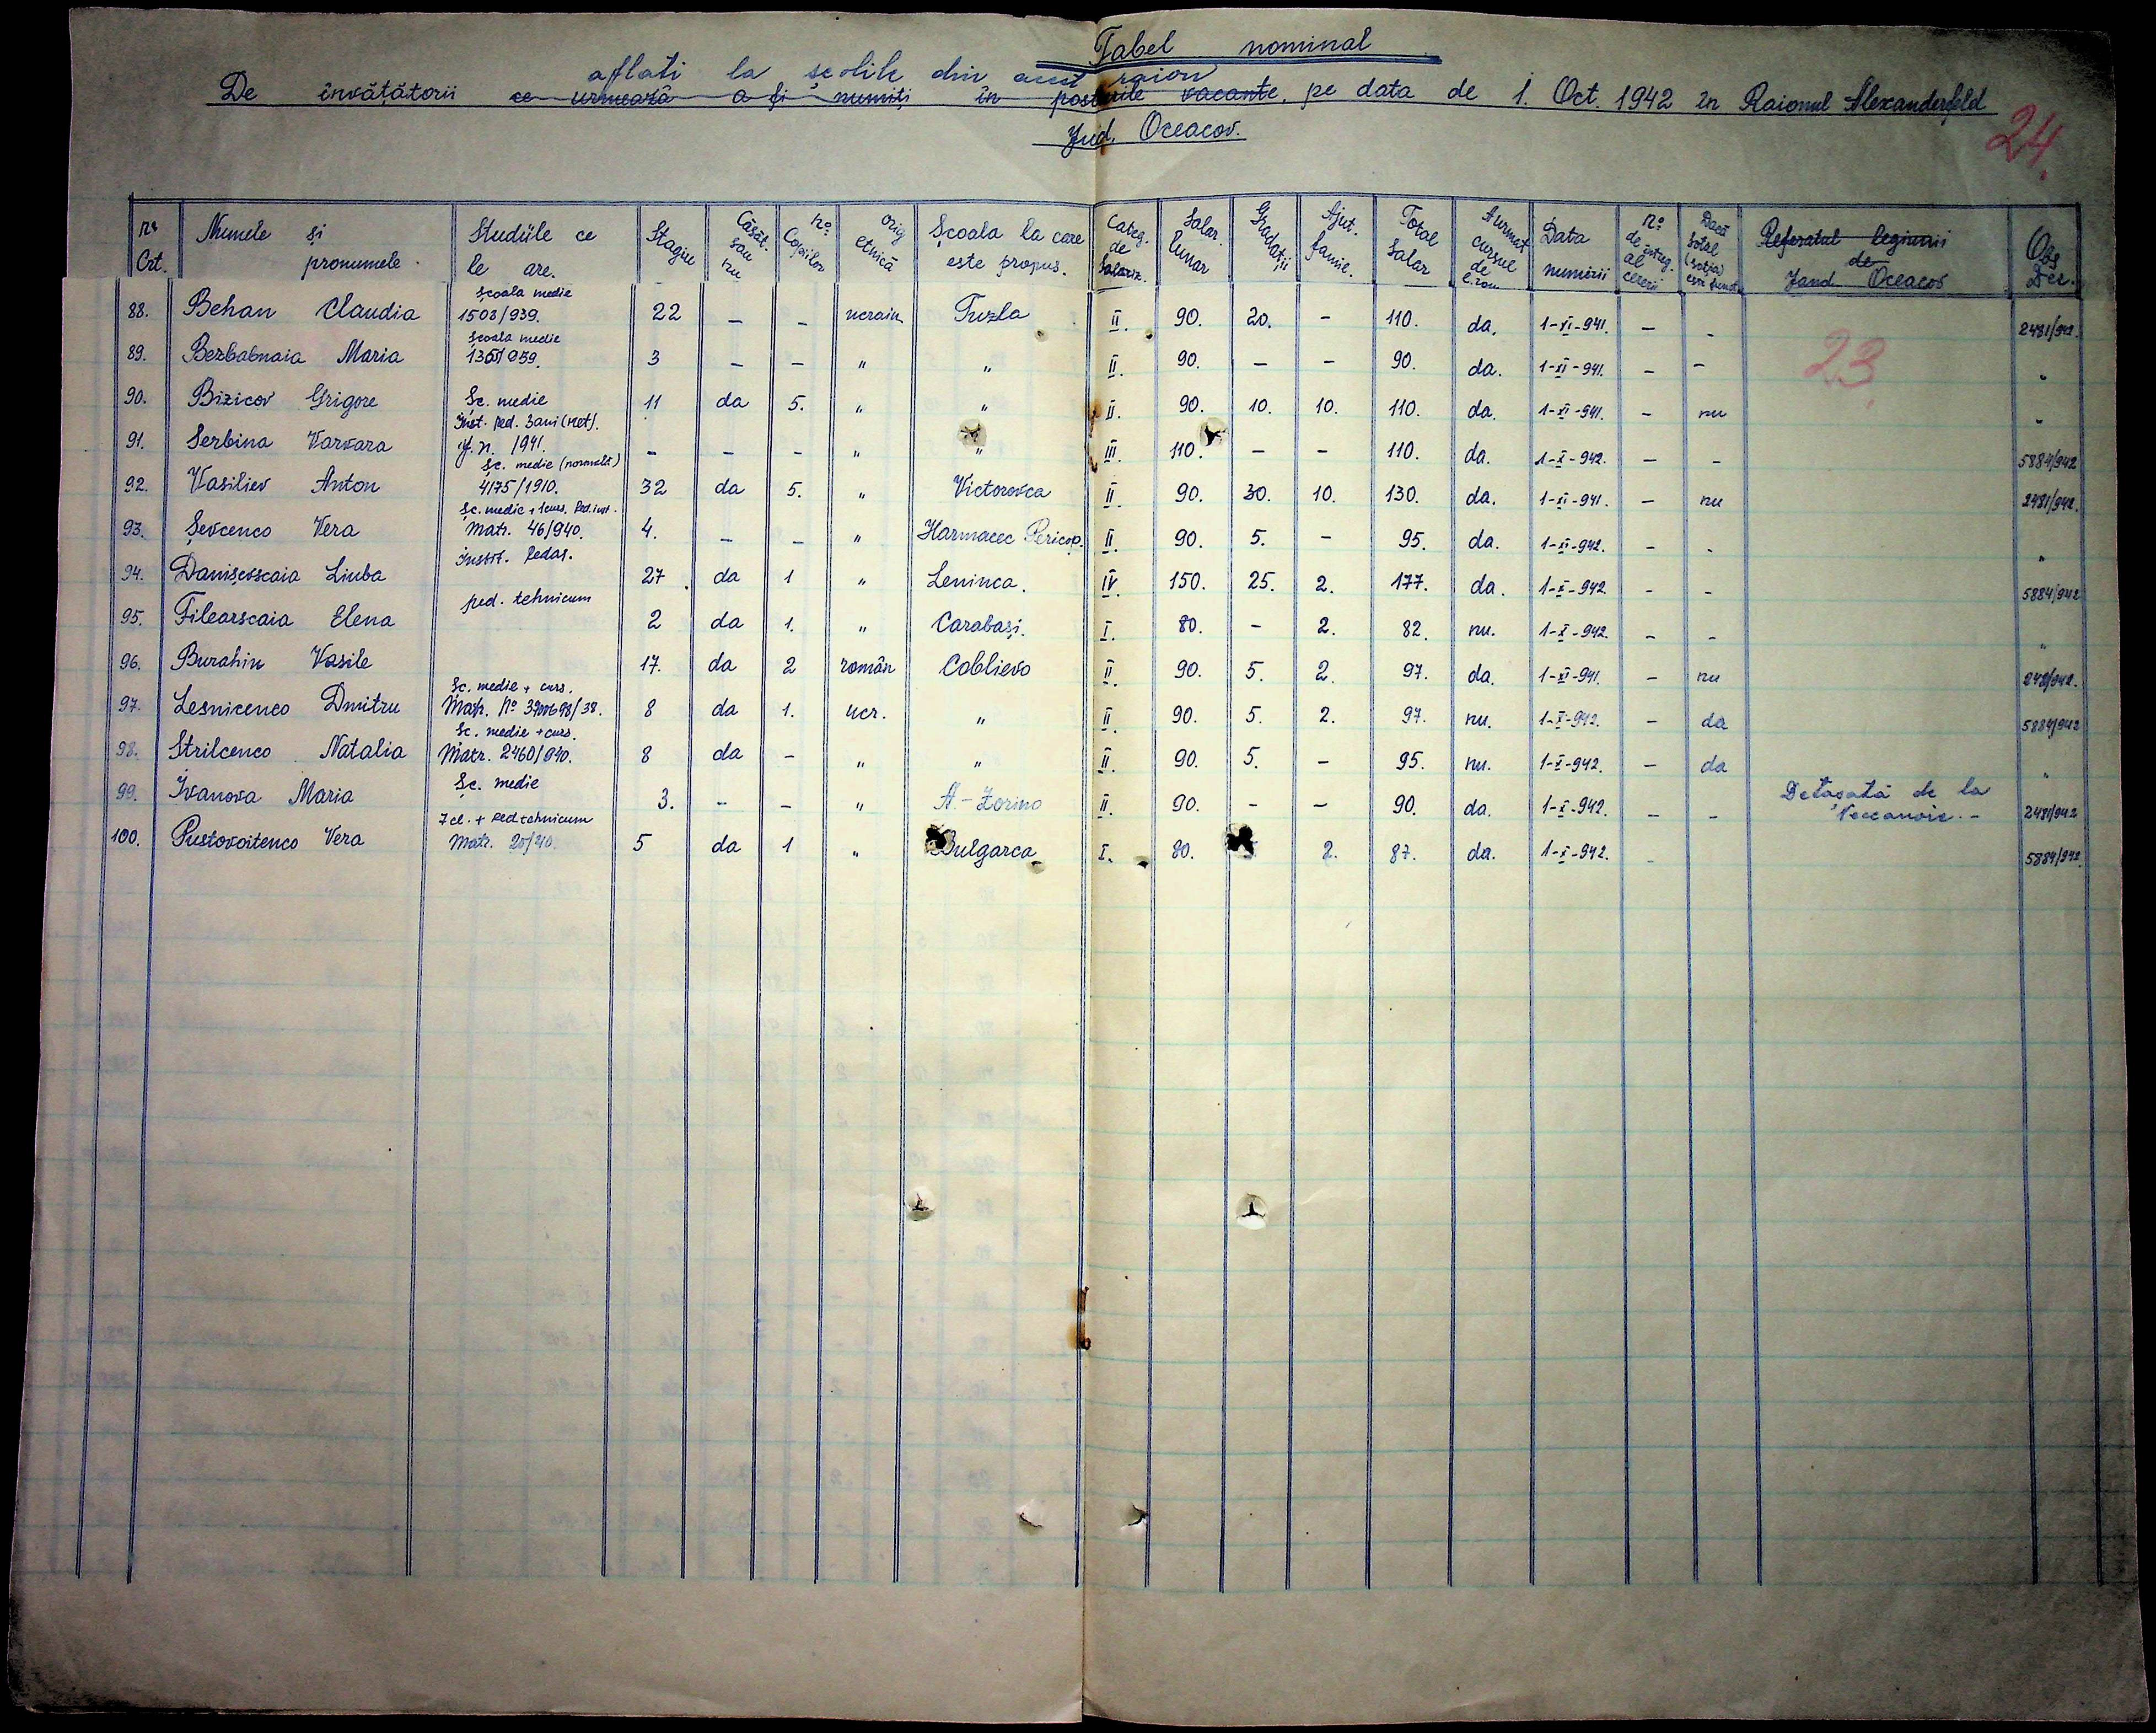 Tabel nominal
aflati la școlile din acest raion
De învățătorii ce urmează a fi numiți în posturile vacante, pe data de 1. Oct. 1942 în Raionul Alexanderfeld
Jud. Oceacov.
24.
Nr. Crt. Numele și pronumele. Studiile ce le are. Stagiu Căsăt. sau nu No. Copiilor Orig etnică Școala la care este propus. Categ. de Salariz. Salar. lunar Gradații Ajut. famil. Total Salar A urmat cursul de l. rom Data numirii No. de înreg. al cererii Dacă Sotul (soția) este Referatul legiunii de Jand. Oceacov Obs Dec.
88. Behan Claudia Școala medie 1503/939. 22 – – ucrain. Tuzla II. 90. 20. – 110. da. 1-XI-941. – - 2481/942.
89. Bezbabnaia Maria Școala medie 3 – – " " II. 90. – – 90. da. 1-XI-941. – – "
23
90. Bizicov Grigore Sc. medie 11 da 5. " " II. 90. 10. 10. 110. da. 1-XI-941. – nu "
91. Serbina Varvara Inst. ped. 3 ani (net). f. n. 1941. – – – " " III. 110. – – 110. da. 1-X-942. – – 5884/942
92. Vasiliev Anton Sc. medie (normală) 4175/1910. 32 da 5. " Victorovca II. 90. 30. 10. 130. da. 1-XI-941. – nu 2481/942.
93. Șevcenco Vera Sc. medie + 1 curs. Ped. inst. Matr. 46/940. 4. – – " Harmacec Pericop. II. 90. 5. – 95. da. 1-XI-942. – - "
94. Danișevscaia Liuba Instit. Pedag. 27 da 1 " Leninca. IV 150. 25. 2. 177. da. 1-X-942. – – 5884/942
95. Filearscaia Elena ped. tehnicum 2 da 1. " Carabași. I. 80. – 2. 82. nu. 1-X-942. – – "
96. Burahin Vasile 17. da 2 român Coblievo II. 90. 5. 2. 97. da. 1-XI-941. – nu 2481/942.
97. Lesnicenco Dmitru Sc. medie + curs. Matr. No 8 da 1. ucr. " II. 90. 5. 2. 97. nu. 1-X-942. – da 5884/942
98. Strilcenco Natalia Sc. medie + curs. Matr. 2460/940. 8 da – " " II. 90. 5. – 95. nu. 1-X-942. – da "
99. Ivanova Maria Sc. medie 3. – – " A.-Zorino II. 90. – – 90. da. 1-X-942. – – Detașată de la 2481/942
100. Pustovoitenco Vera 7 cl. + Ped tehnicum Matr. 20/940 5 da 1 " Bulgarca I. 80. 2. 87. da. 1-X-942. – 5884/942